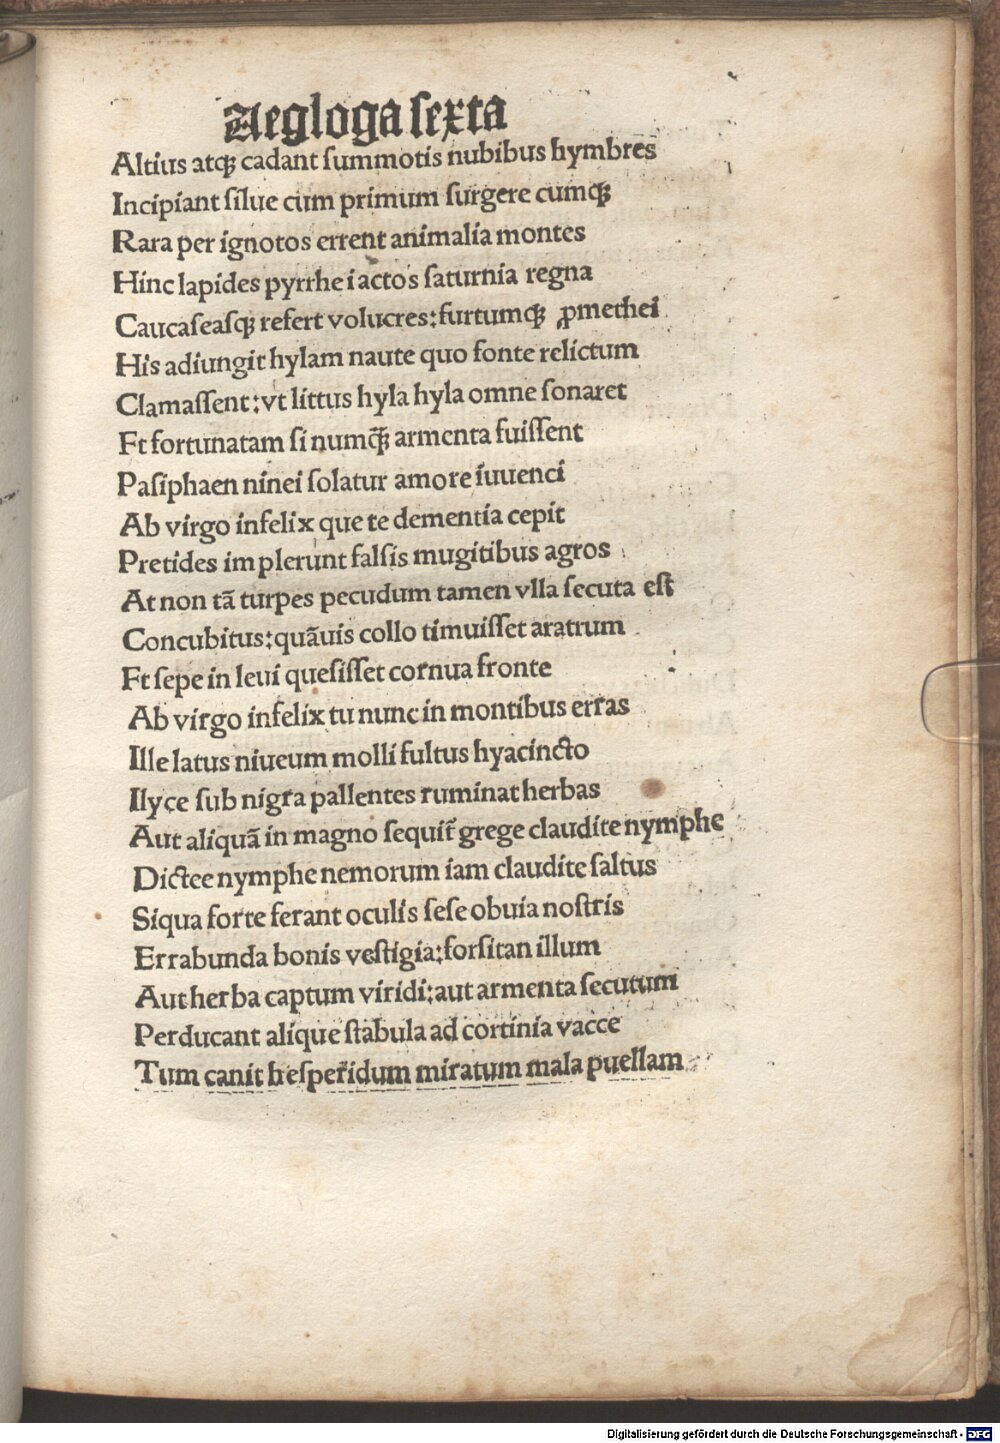 Aegloga sexta
Altius atqꝫ cadant ſummotis nubibus hymbres
Incipiant ſilue cum primum ſurgere cumqꝫ
Rara per ignotos errent animalia montes
Hinc lapides pyrrhe iactos ſaturnia regna
Caucaſeaſqꝫ refert volucres:furtumqꝫ ꝓmethei
His adiungit hylam naute quo fonte relictum
Clamaſſent:vt littus hyla hyla omne ſonaret
Et fortunatam ſi numqꝫ̃ armenta fuiſſent
Paſiphaen ninei ſolatur amore iuuenci
Ab virgo infelix que te dementia cepit
Pretides implerunt falſis mugitibus agros
At non tã turpes pecudum tamen vlla ſecuta eſt
Concubitus:quãuis collo timuiſſet aratrum
Et ſepe in leui queſiſſet cornua fronte
Ab virgo infelix tu nunc in montibus erras
Ille latus niueum molli fultus hyacincto
Ilyce ſub nigra pallentes ruminat herbas
Aut aliquã in magno ſequit᷑ grege claudite nymphe
Dictee nymphe nemorum iam claudite ſaltus
Siqua forte ferant oculis ſeſe obuia noſtris
Errabunda bonis veſtigia:forſitan illum
Aut herba captum viridi:aut armenta ſecutum
Perducant alique ſtabula ad cortinia vacce
Tum canit heſperidum miratum mala puellam
Digitalisierung gefördert durch die Deutsche Forschungsgemeinschaft - DFG